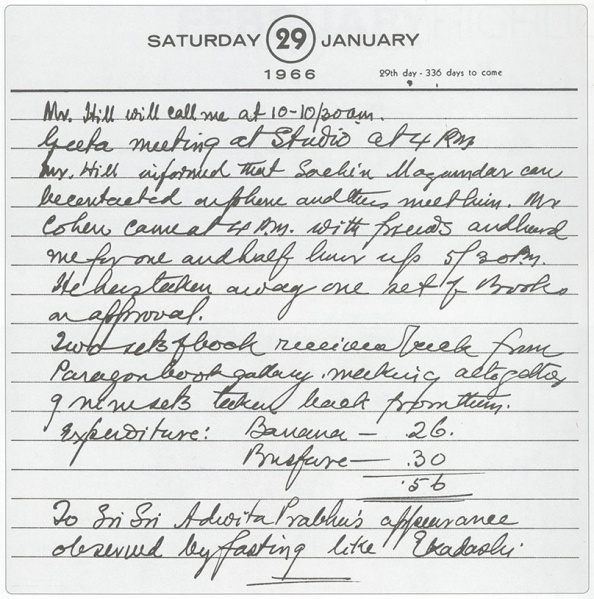 SATURDAY 29 JANUARY
1966 29th day - 336 days to come
Mr. Hill will call me at 10-10/30 am.
Geeta meeting at Studio at 4 P.M.
Mr. Hill informed that Sachin Magumdar can
be contacted on phone and thus meet him. Mr
Cohen came at 4 P.M. with friends and heard
me for one and half hour up 5/30 P.M.
He has taken away one set of Books
on approval.
Two sets of book received back from
Paragon book gallary. making altogether
9 nine sets taken back from them.
Expenditure: Banana — .26.
Busfare — .30
.56
To Sri Sri Adwita Prabhu's appearance
observed by fasting like Ekadashi.